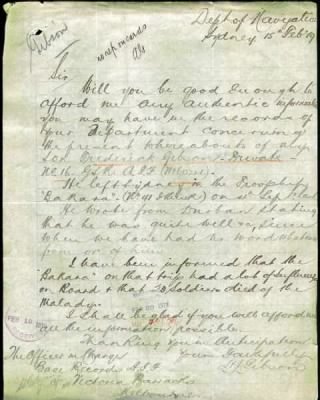 Gibson
no records
Dept of Navigation
Sydney 15th Feb 19
Sir
Will you be good enough to
afford me any authentic information
you may have in the records of
your Department concerning
the present whereabouts of my
son Frederick Gibson - Private -
A.I.F.
He left Sydney in the Troopship
"Bakara" on Sept last
He wrote from Durban stating
that he was quite well &, since
when we have had no word whatever
from him.
I have been informed that the
"Bakara" on that trip had a lot of Influenza
on Board & that 20 Soldiers died of the
Malady.
I shall be glad if you will afford me
all the information possible.
Thanking you in anticipation
Yours faithfully
Gibson
The Officer in Charge
Base Records A.I.F
Victoria Barracks
Melbourne